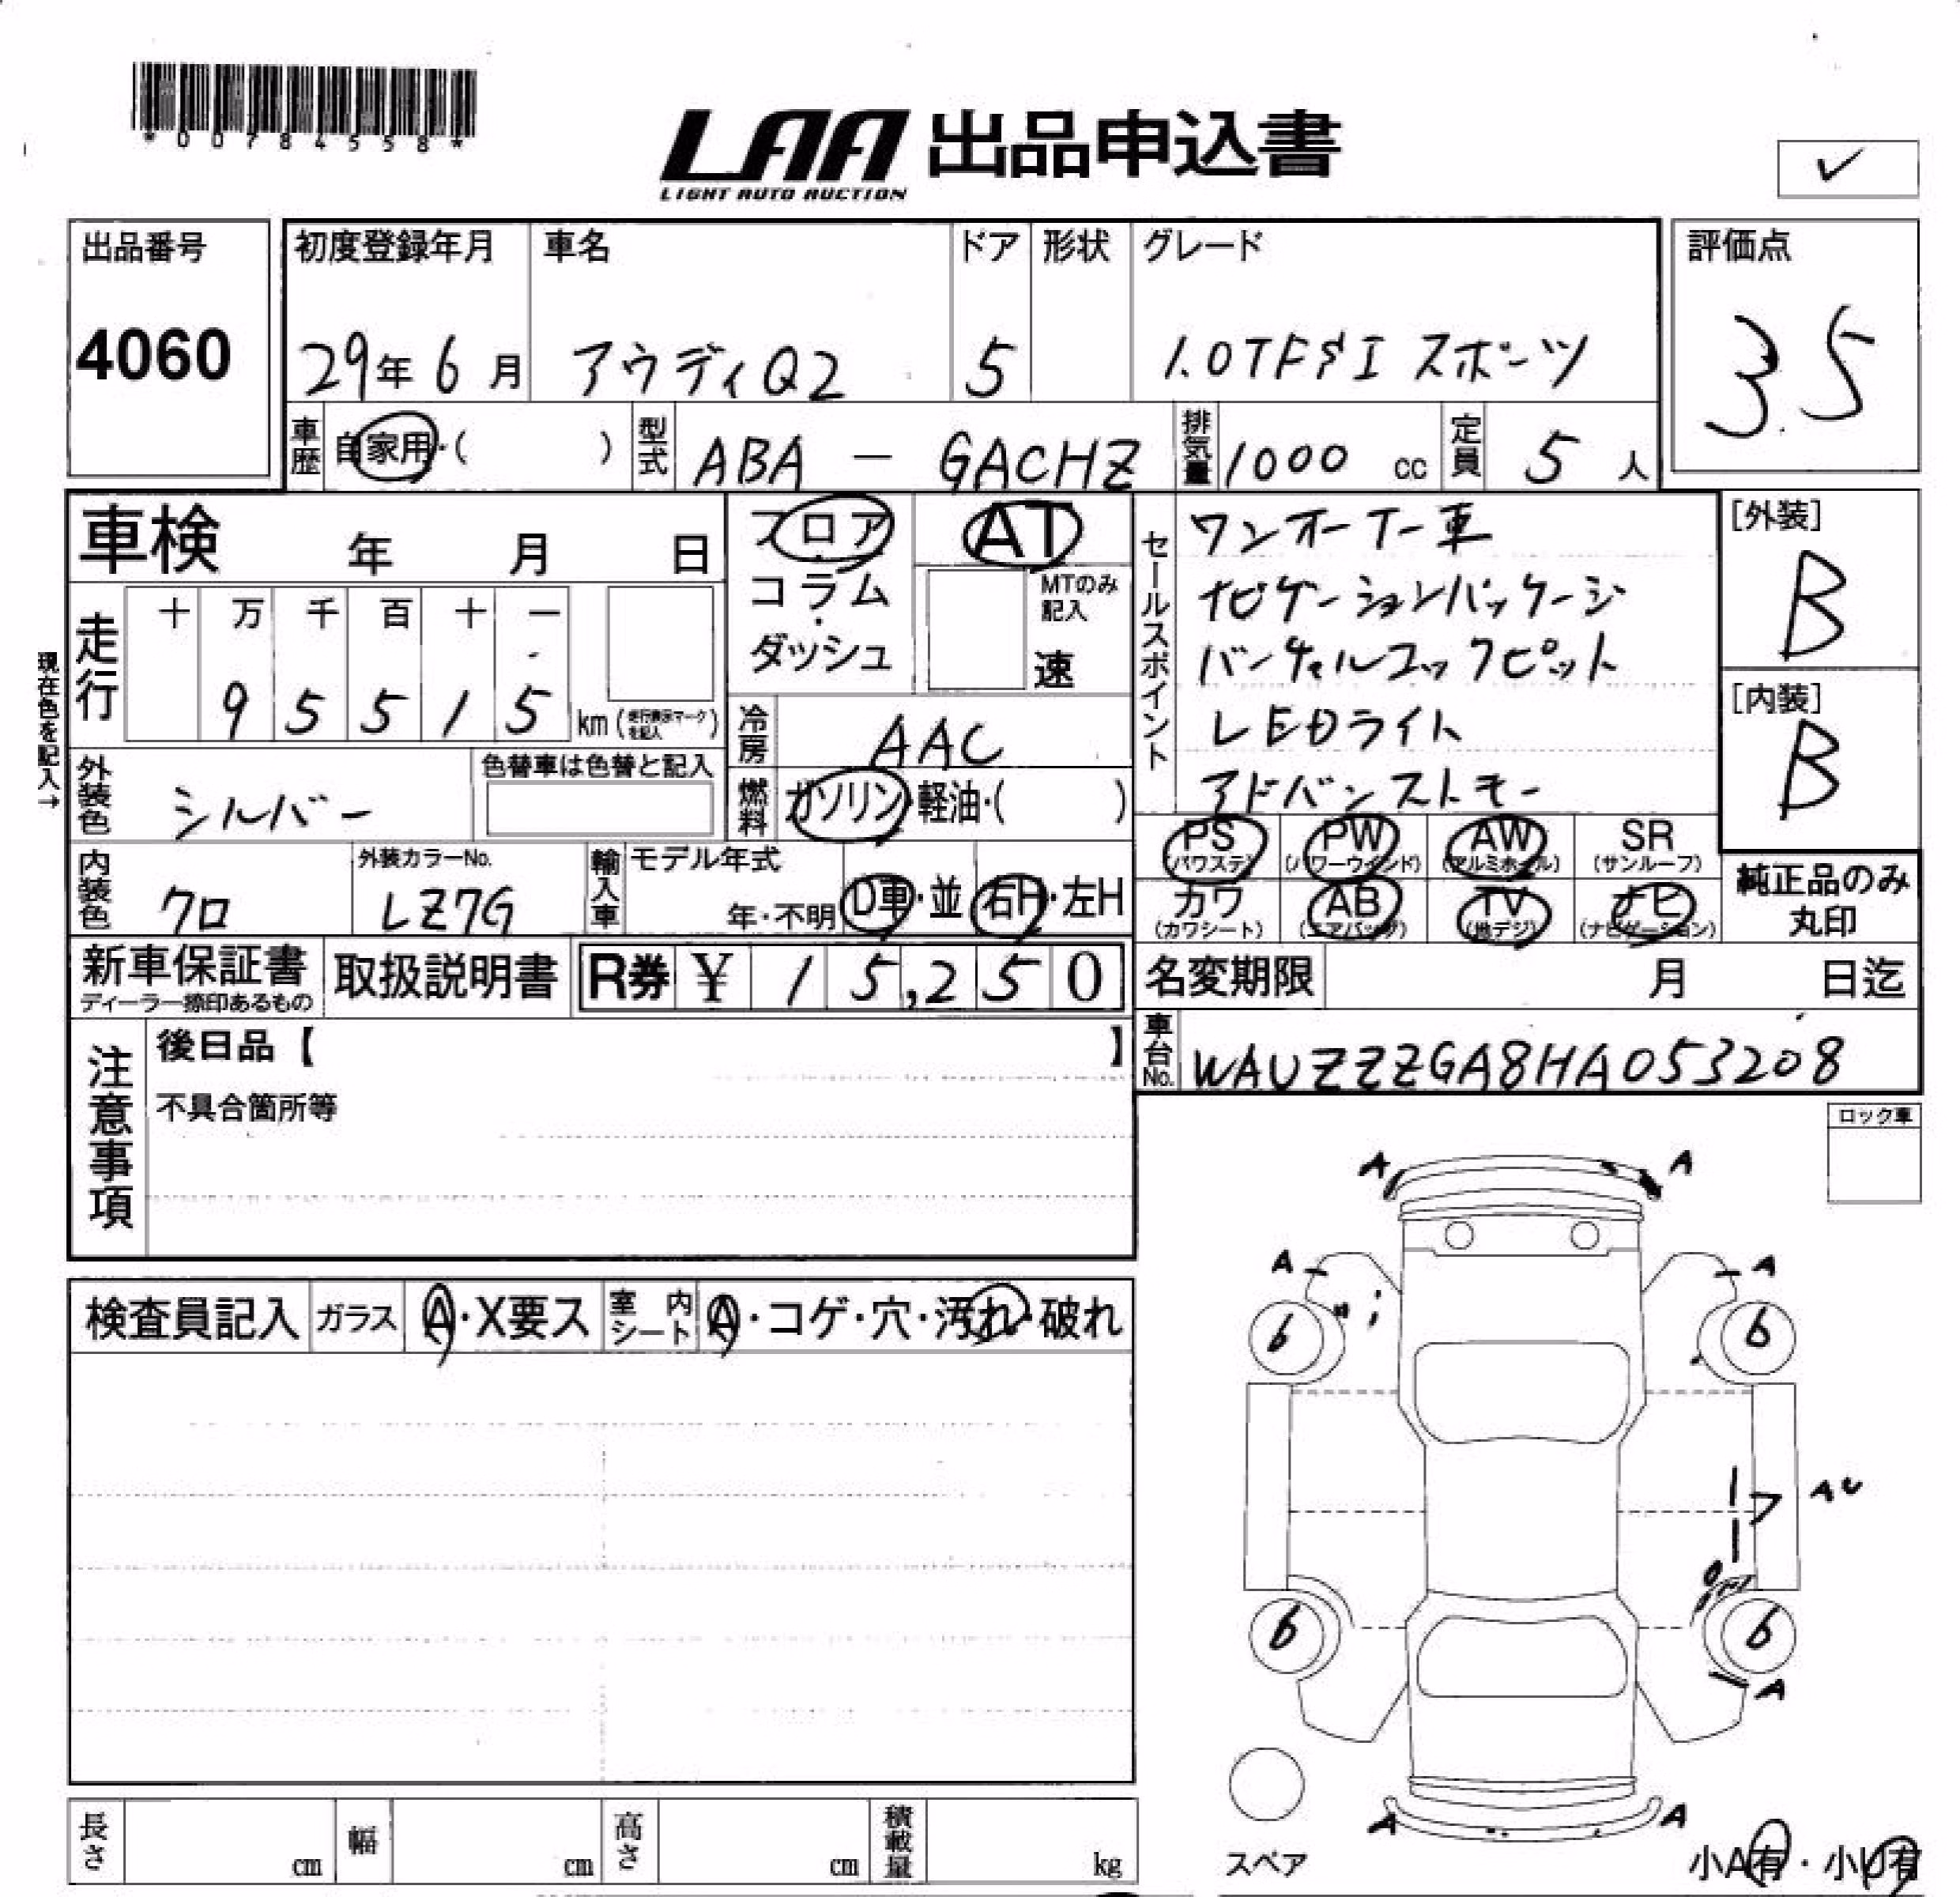 *00784558*
LAA 出品申込書
LIGHT AUTO AUCTION
✓
出品番号
4060
初度登録年月 車名 ドア 形状 グレード
29年6月 アウディQ2 5 1.0TFSI スポーツ
評価点
3.5
車歴 自家用・( ) 型式 ABA - GACHZ 排気量 1000 cc 定員 5 人
車検 年 月 日
フロア・コラム・ダッシュ
AT
MTのみ記入
速
セールスポイント
ワンオーナー車
ナビゲーションパッケージ
バーチャルコックピット
LEDライト
アドバンストキー
[外装]
B
[内装]
B
現在色を記入→
走行 十 万 千 百 十 一
9 5 5 1 5 km (走行表示マークを記入)
冷房 AAC
外装色 シルバー 色替車は色替と記入
燃料 ガソリン・軽油・( )
内装色 クロ 外装カラーNo. LZ7G 輸入車 モデル年式 年・不明 D車・並 右H・左H
PS (パワステ) PW (パワーウインド) AW (アルミホイル) SR (サンルーフ)
カワ (カワシート) AB (エアバッグ) TV (地デジ) ナビ (ナビゲーション)
純正品のみ丸印
新車保証書 ディーラー捺印あるもの 取扱説明書 R券 ¥ 15,250
名変期限 月 日迄
車台No. WAUZZZGA8HA053208
注意事項
後日品【 】
不具合箇所等
ロック車
検査員記入 ガラス A・X要ス 室内シート A・コゲ・穴・汚れ・破れ
A A
A A
6 6
AU
6 6
A
A A
スペア
小A有・小U有
長さ cm 幅 cm 高さ cm 積載量 kg